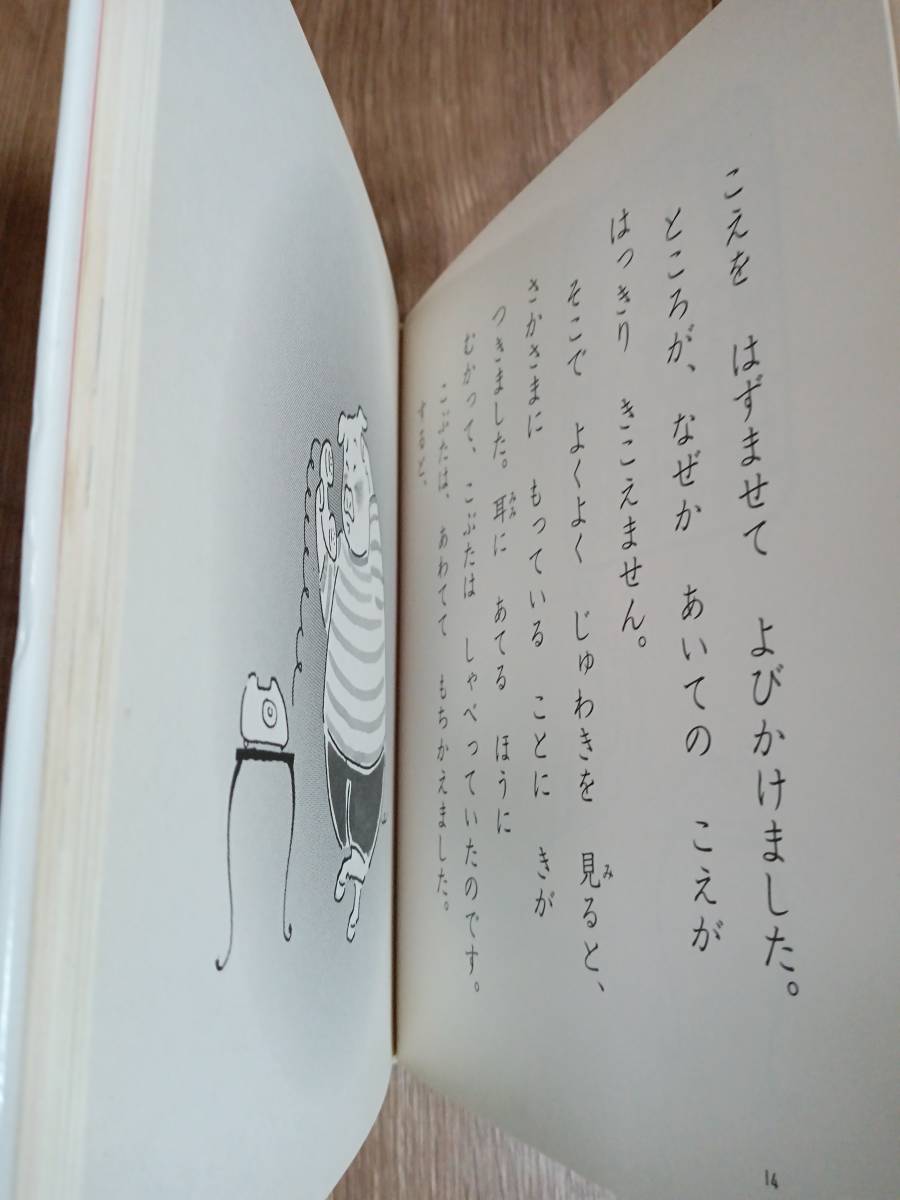 こえを　はずませて　よびかけました。
ところが、なぜか　あいての　こえが
はっきり　きこえません。
そこで　よくよく　じゅわきを　見ると、
さかさまに　もっている　ことに　きが
つきました。耳に　あてる　ほうに
むかって、こぶたは　しゃべっていたのです。
こぶたは、あわてて　もちかえました。
すると、
14